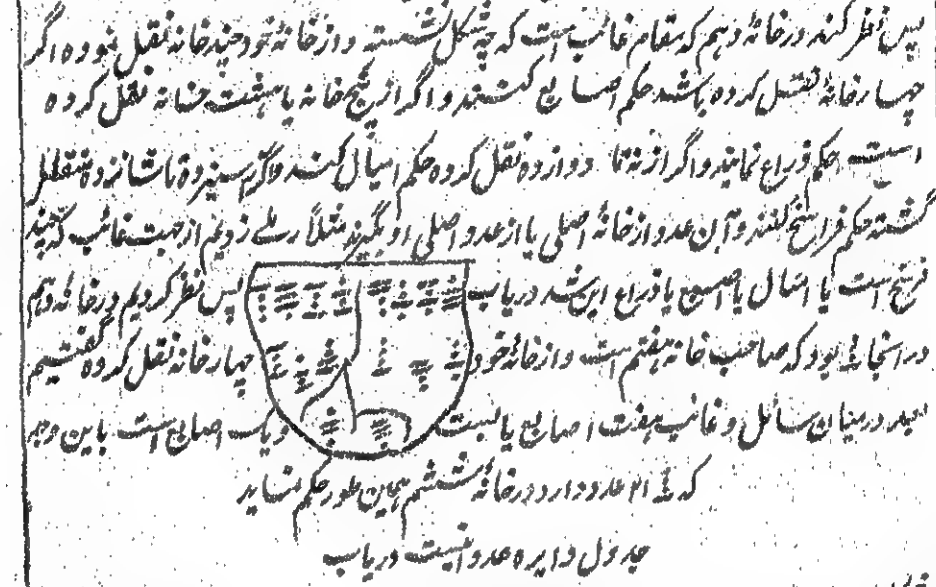 پس نظر کنند در خانهٔ دهم که مقام غائب است که چه شکل نشسته و از خانهٔ خود چند خانه نقل نموده اگر
چهار خانهٔ نقل کرده باشد حکم اصابع کنند و اگر از پنج خانه یا هشت خانه نقل کرده
است حکم ذراع نمایند و اگر از نه تا دوازده نقل کرده حکم امیال کنند و اگر سیزده تا شانزده نقل
گشته حکم فراسخ کنند و آن عدد از خانهٔ اصلی یا از عدد اصلی او بگیرند مثلاً رملے زدیم از جهت غائب که چند
فرسخ است یا امیال یا اصبع یا ذراع این شد دریاب پس نظر کردیم در خانهٔ دهم
در انجا بود که صاحب خانه هفتم است و از خانهٔ خود چهار خانه نقل کرده گفتیم
بعد در میان سائل و غائب هفت اصابع یا بست و یک اصابع است باین وجه
که عدد دارد در خانهٔ ششم همین طور حکم نماید
جدول دایره عدد اینست دریاب